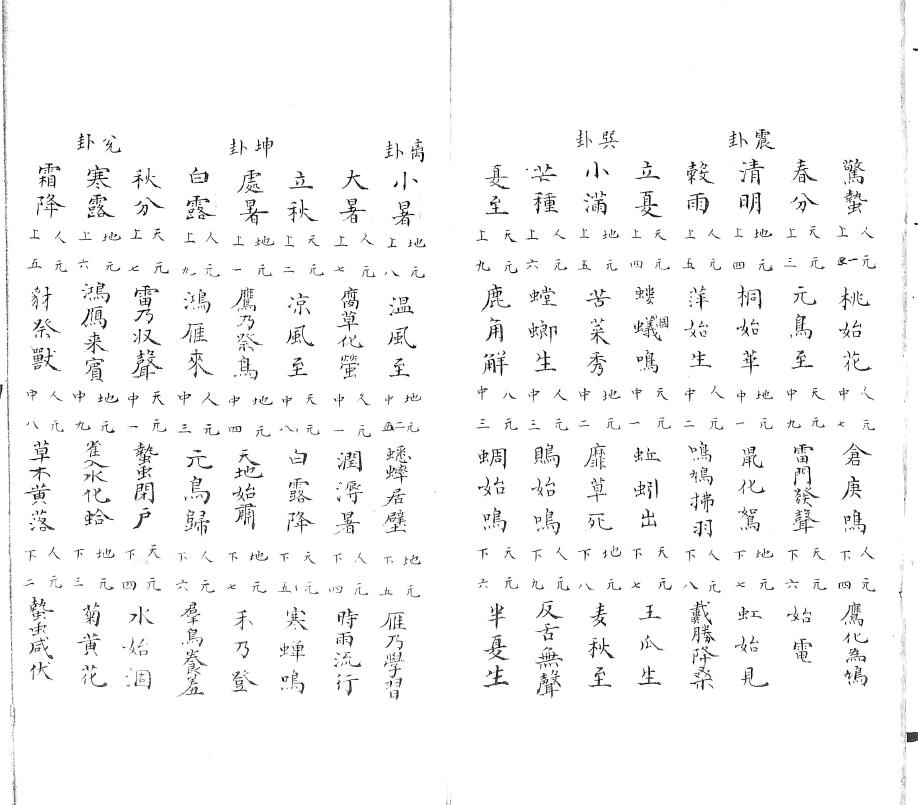 驚蟄 人元上一 桃始花 人元中七 倉庚鳴 人元下四 鷹化為鳩
春分 天元上三 元鳥至 天元中九 雷門發聲 天元下六 始電
震卦
清明 地元上四 桐始華 地元中一 鼡化鴽 地元下七 虹始見
穀雨 人元上五 萍始生 人元中二 鳴鳩拂羽 人元下八 戴勝降桑
立夏 天元上四 螻蟻國鳴 天元中一 蚯蚓出 天元下七 王瓜生
巽卦
小滿 地元上五 苦菜秀 地元中二 靡草死 地元下八 麦秋至
芒種 人元上六 螳螂生 人元中三 鵙始鳴 人元下九 反舌無聲
夏至 天元上九 鹿角解 八元中三 蜩始鳴 天元下六 半夏生
離卦
小暑 地元上八 温風至 地元中二 蟋蟀居壁 地元下五 雁乃學習
大暑 人元上七 腐草化螢 人元中一 潤溽暑 人元下四 時雨流行
立秋 天元上二 凉風至 天元中八 白露降 天元下五 寒蟬鳴
坤卦
處暑 地元上一 鷹乃祭鳥 地元中四 天地始肅 地元下七 禾乃登
白露 人元上九 鴻雁來 人元中三 元鳥歸 人元下六 羣鳥養羞
秋分 天元上七 雷乃収聲 天元中一 蟄虫閉戶 天元下四 水始涸
兌卦
寒露 地元上六 鴻鴈来賓 地元中九 雀入水化蛤 地元下三 菊黄花
霜降 人元上五 豺祭獸 人元中八 草木黄落 人元下二 蟄虫咸伏